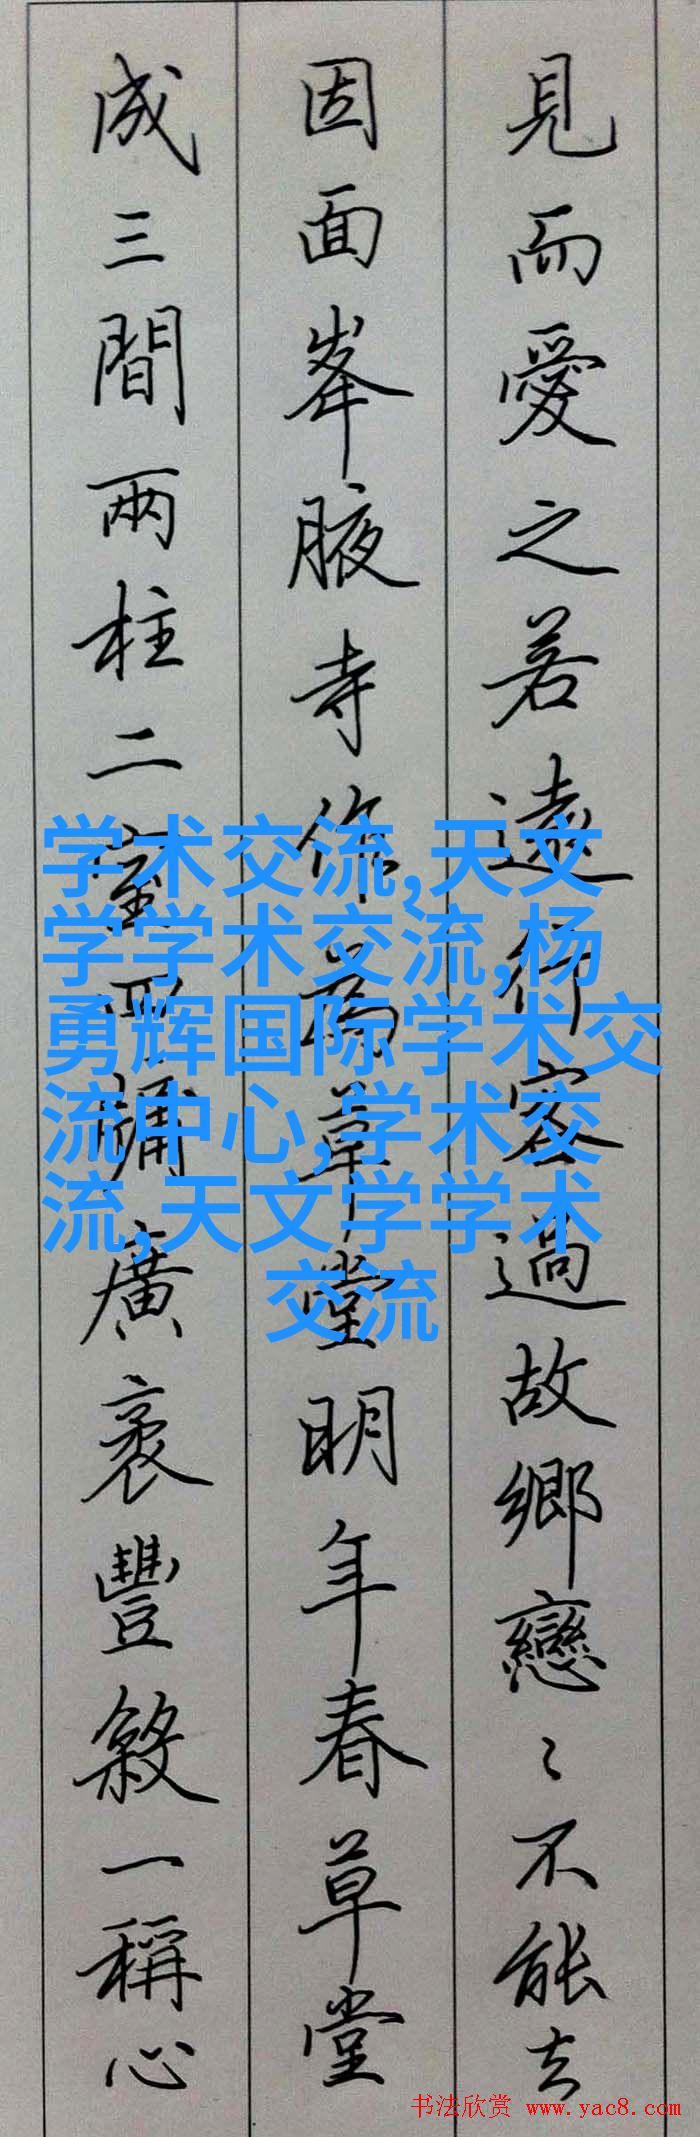 見而愛之若遠行客過故鄉戀〻不能去
因面峯腋寺作為草堂明年春草堂
成三間兩柱二室四牖廣袤豐殺一稱心
学术交流,天文
学学术交流,杨
勇辉国际学术交
流中心,学术交
流,天文学学术
交流
书法欣赏 www.yac8.com